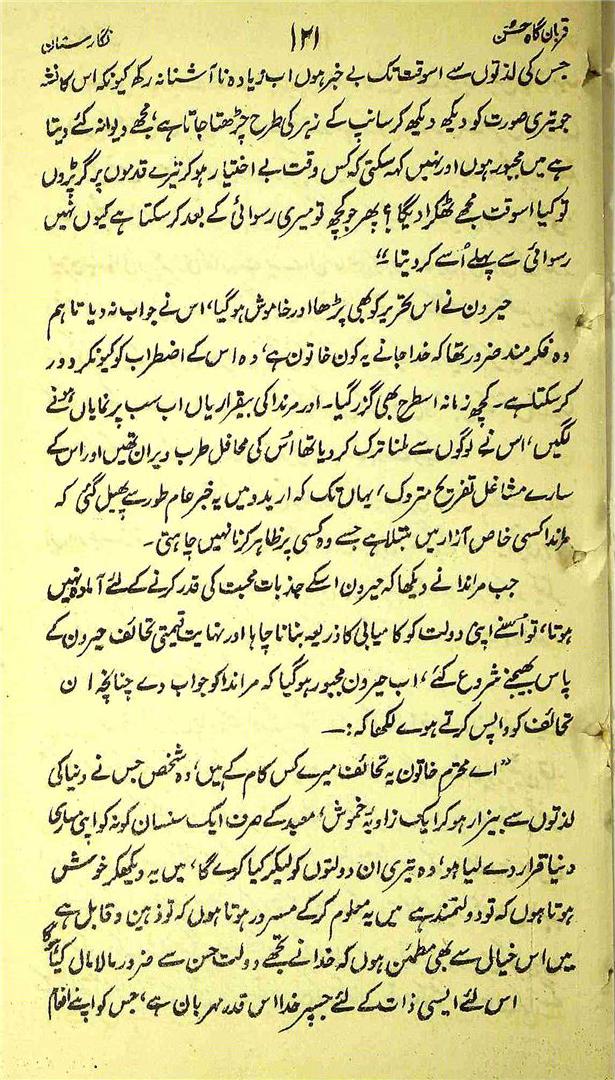 قربان گاہ حسن ۱۲۱ نگارستان
جس کی لذتوں سے اسوقت تک بے خبر ہوں اب زیادہ نا آشنا نہ رکھ کیونکہ اس کا نشہ
جو تیری صورت کو دیکھ دیکھ کر سانپ کے زہر کی طرح چڑھتا جاتا ہے، مجھے دیوانہ کئے دیتا
ہے میں مجبور ہوں اور نہیں کہہ سکتی کہ کس وقت بے اختیار ہو کر تیرے قدموں پر گر پڑوں
تو کیا اسوقت مجھے ٹھکرا دیگا؟ پھر جو کچھ تو میری رسوائی کے بعد کر سکتا ہے کیوں نہیں
رسوائی سے پہلے اُسے کر دیتا"
جیرون نے اس تحریر کو بھی پڑھا اور خاموش ہو گیا، اس نے جواب نہ دیا تاہم
وہ فکر مند ضرور تھا کہ خدا جانے یہ کون خاتون ہے، وہ اس کے اضطراب کو کیونکر دور
کر سکتا ہے۔ کچھ زمانہ اسطرح بھی گزر گیا۔ اور مرندا کی بیقراریاں اب سب پر نمایاں ہونے
لگیں، اس نے لوگوں سے ملنا ترک کر دیا تھا اُس کی محافل طرب ویران تھیں اور اس کے
سارے مشاغل تفریح متروک، یہاں تک کہ اریدو میں یہ خبر عام طور سے پھیل گئی کہ
مراندا کسی خاص آزار میں مبتلا ہے جسے وہ کسی پر ظاہر کرنا نہیں چاہتی۔
جب مراندا نے دیکھا کہ جیرون اسکے جذبات محبت کی قدر کرنے کے لئے آمادہ نہیں
ہوتا، تو اُسنے اپنی دولت کو کامیابی کا ذریعہ بنانا چاہا اور نہایت قیمتی تحائف جیرون کے
پاس بھیجنے شروع کئے، اب جیرون مجبور ہو گیا کہ مراندا کو جواب دے چنانچہ ان
تحائف کو واپس کرتے ہوے لکھا کہ:۔
"اے محترم خاتون یہ تحائف میرے کس کام کے ہیں، وہ شخص جس نے دنیا کی
لذتوں سے بیزار ہو کر ایک زاویۂ خموش، معبد کے صرف ایک سنسان کونہ کو اپنی ساری
دنیا قرار دے لیا ہو، وہ تیری ان دولتوں کو لیکر کیا کرے گا، میں یہ دیکھکر خوش
ہوتا ہوں کہ تو دولتمند ہے میں یہ معلوم کر کے مسرور ہوتا ہوں کہ تو ذہین و قابل ہے
میں اس خیال سے بھی مطمئن ہوں کہ خدا نے تجھے دولت حسن سے ضرور مالا مال کیا ہوگا
اس لئے ایسی ذات کے لئے جسپر خدا اس قدر مہربان ہے، جس کو اپنے انعام